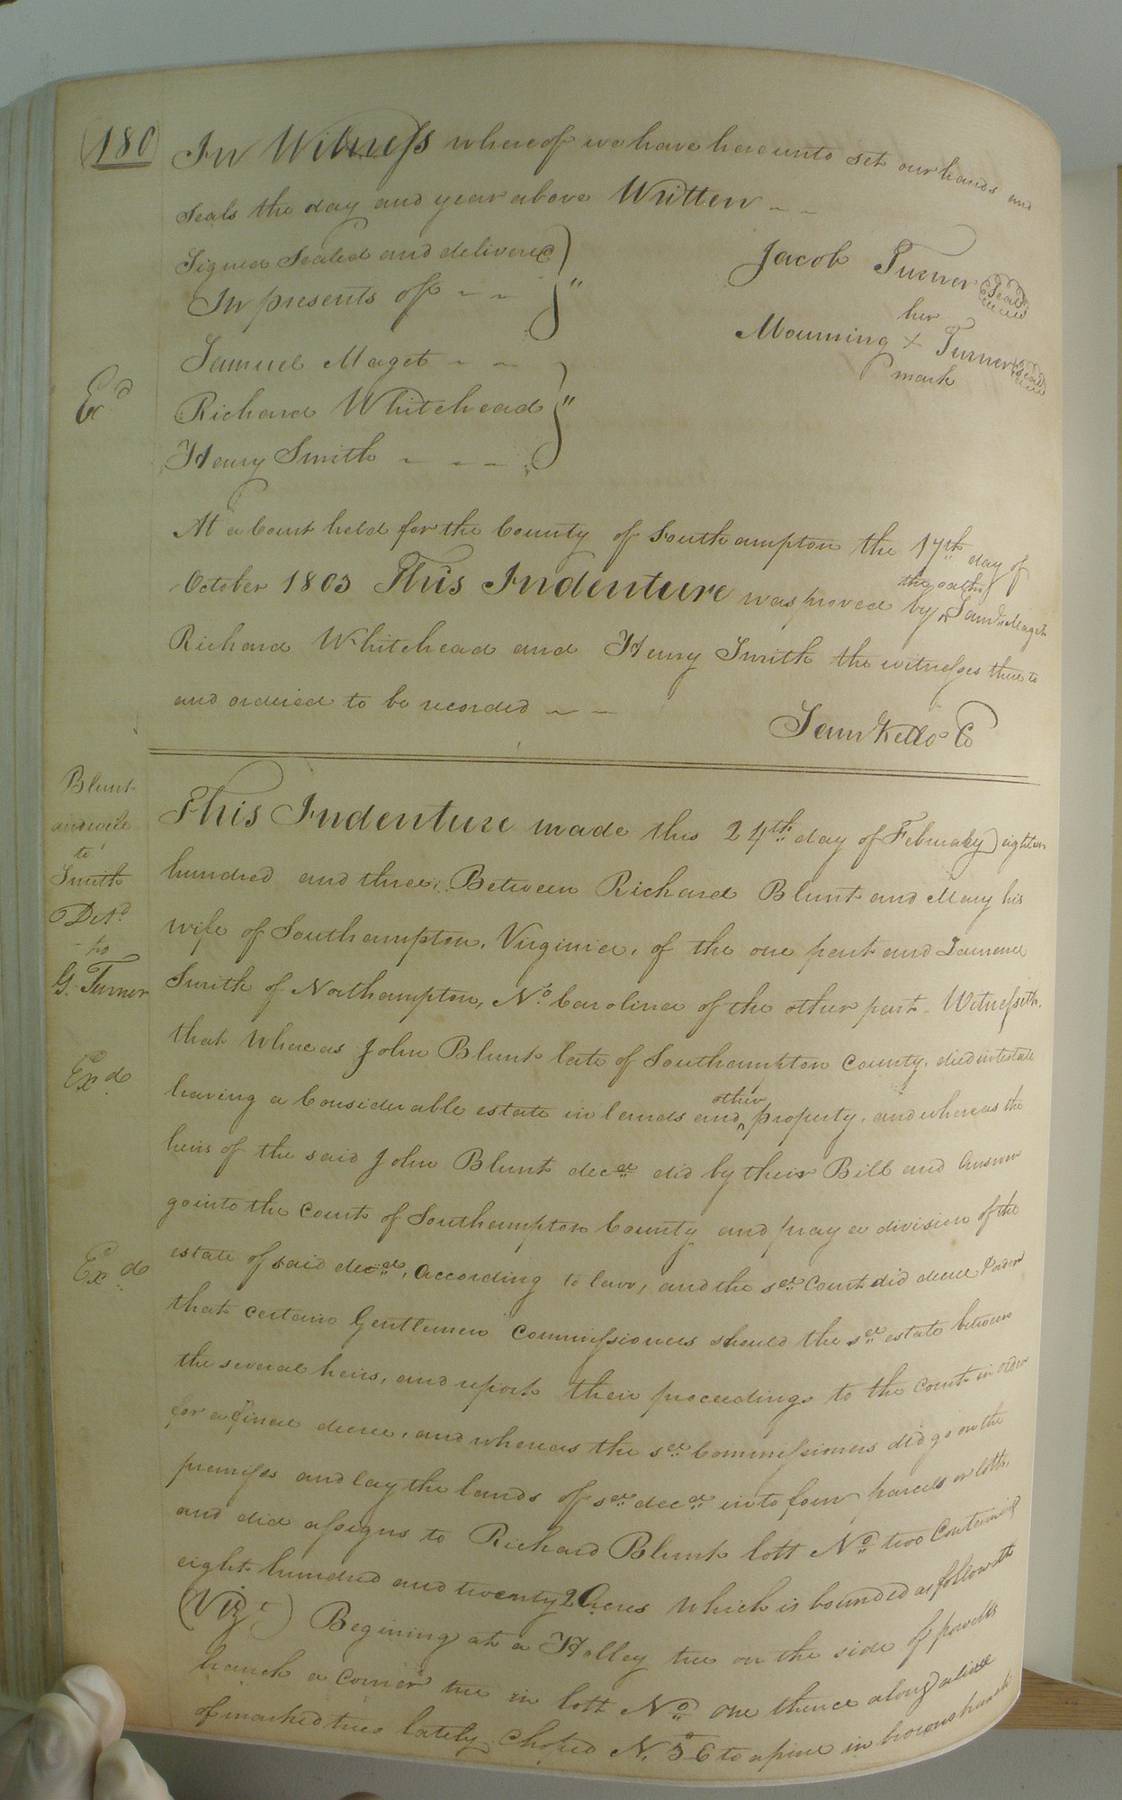 180
In Witness whereof we have hereunto set our hands and
Seals the day and year above Written
Signed Sealed and delivered
In presents off
Jacob Turner Seal
her
Mourning X Turner Seal
mark
Samuel Maget
Exd
Richard Whitehead
Henry Smith
At a Court held for the County of Southampton the 17th day of
October 1803 This Indenture was proved by the oaths of Saml Maget
Richard Whitehead and Henry Smith the witnesses thereto
and ordered to be recorded
Sam Kello C
Blunt
and wife
to
Smith
Deld
to
G. Turner
Exd
Exd
This Indenture made this 24th day of February eighteen
hundred and three, Between Richard Blunt and Mary his
wife of Southampton, Virginia, of the one part and Laurence
Smith of Northampton, No Carolina of the other part. Witnesseth,
that Whereas John Blunt late of Southampton County, died intestate
having a Considerable estate in lands and other property, and whereas the
heirs of the said John Blunt decd did by their Bill and Answer
go into the Court of Southampton County and pray a division of the
estate of said decd, according to law, and the sd Court did decree &
that certain Gentlemen Commissioners should the sd estate between
the several heirs, and report their proceedings to the Court in order
for a final decree, and whereas the sd Commissioners did go on the
premises and lay the lands of sd decd into four parcels or lotts,
and did assigns to Richard Blunt lott No two Containing
eight hundred and twenty 2 Acres which is bounded as followeth
(Vizt) Begining at a Holley tree on the side of powells
branch a corner tree in lott No one thence along a line
of marked trees lately Choped N. 56 to a pine in branch